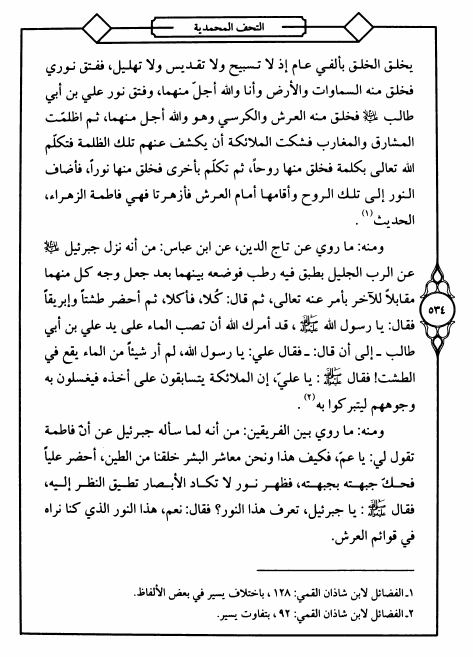 التحف المحمدية
يخلق الخلق بألفي عام إذ لا تسبيح ولا تقديس ولا تهليل، ففتق نوري
فخلق منه السماوات والأرض وأنا والله أجلّ منهما، وفتق نور علي بن أبي
طالب عليه السلام فخلق منه العرش والكرسي وهو والله أجل منهما، ثم اظلمّت
المشارق والمغارب فشكت الملائكة أن يكشف عنهم تلك الظلمة فتكلّم
الله تعالى بكلمة فخلق منها روحاً، ثم تكلّم بأخرى فخلق منها نوراً، فأضاف
النور إلى تلك الروح وأقامها أمام العرش فأزهرتا فهي فاطمة الزهراء،
الحديث(١).
ومنه: ما روي عن تاج الدين، عن ابن عباس: من أنه نزل جبرئيل عليه السلام
عن الرب الجليل بطبق فيه رطب فوضعه بينهما بعد جعل وجه كل منهما
مقابلاً للآخر بأمر عنه تعالى، ثم قال: كُلا، فأكلا، ثم أحضر طشتاً وإبريقاً
فقال: يا رسول الله ﷺ، قد أمرك الله أن تصب الماء على يد علي بن أبي
طالب ـ إلى أن قال: ـ فقال علي: يا رسول الله، لم أر شيئاً من الماء يقع في
الطشت! فقال ﷺ: يا عليّ، إن الملائكة يتسابقون على أخذه فيغسلون به
وجوههم ليتبركوا به(٢).
ومنه: ما روي بين الفريقين: من أنه لما سأله جبرئيل عن أنّ فاطمة
تقول لي: يا عمّ، فكيف هذا ونحن معاشر البشر خلقنا من الطين، أحضر علياً
فحكّ جبهته بجبهته، فظهر نور لا تكاد الأبصار تطيق النظر إليه،
فقال ﷺ: يا جبرئيل، تعرف هذا النور؟ فقال: نعم، هذا النور الذي كنا نراه
في قوائم العرش.
٥٣٤
١ـ الفضائل لابن شاذان القمي: ١٢٨، باختلاف يسير في بعض الألفاظ.
٢ـ الفضائل لابن شاذان القمي: ٩٢، بتفاوت يسير.